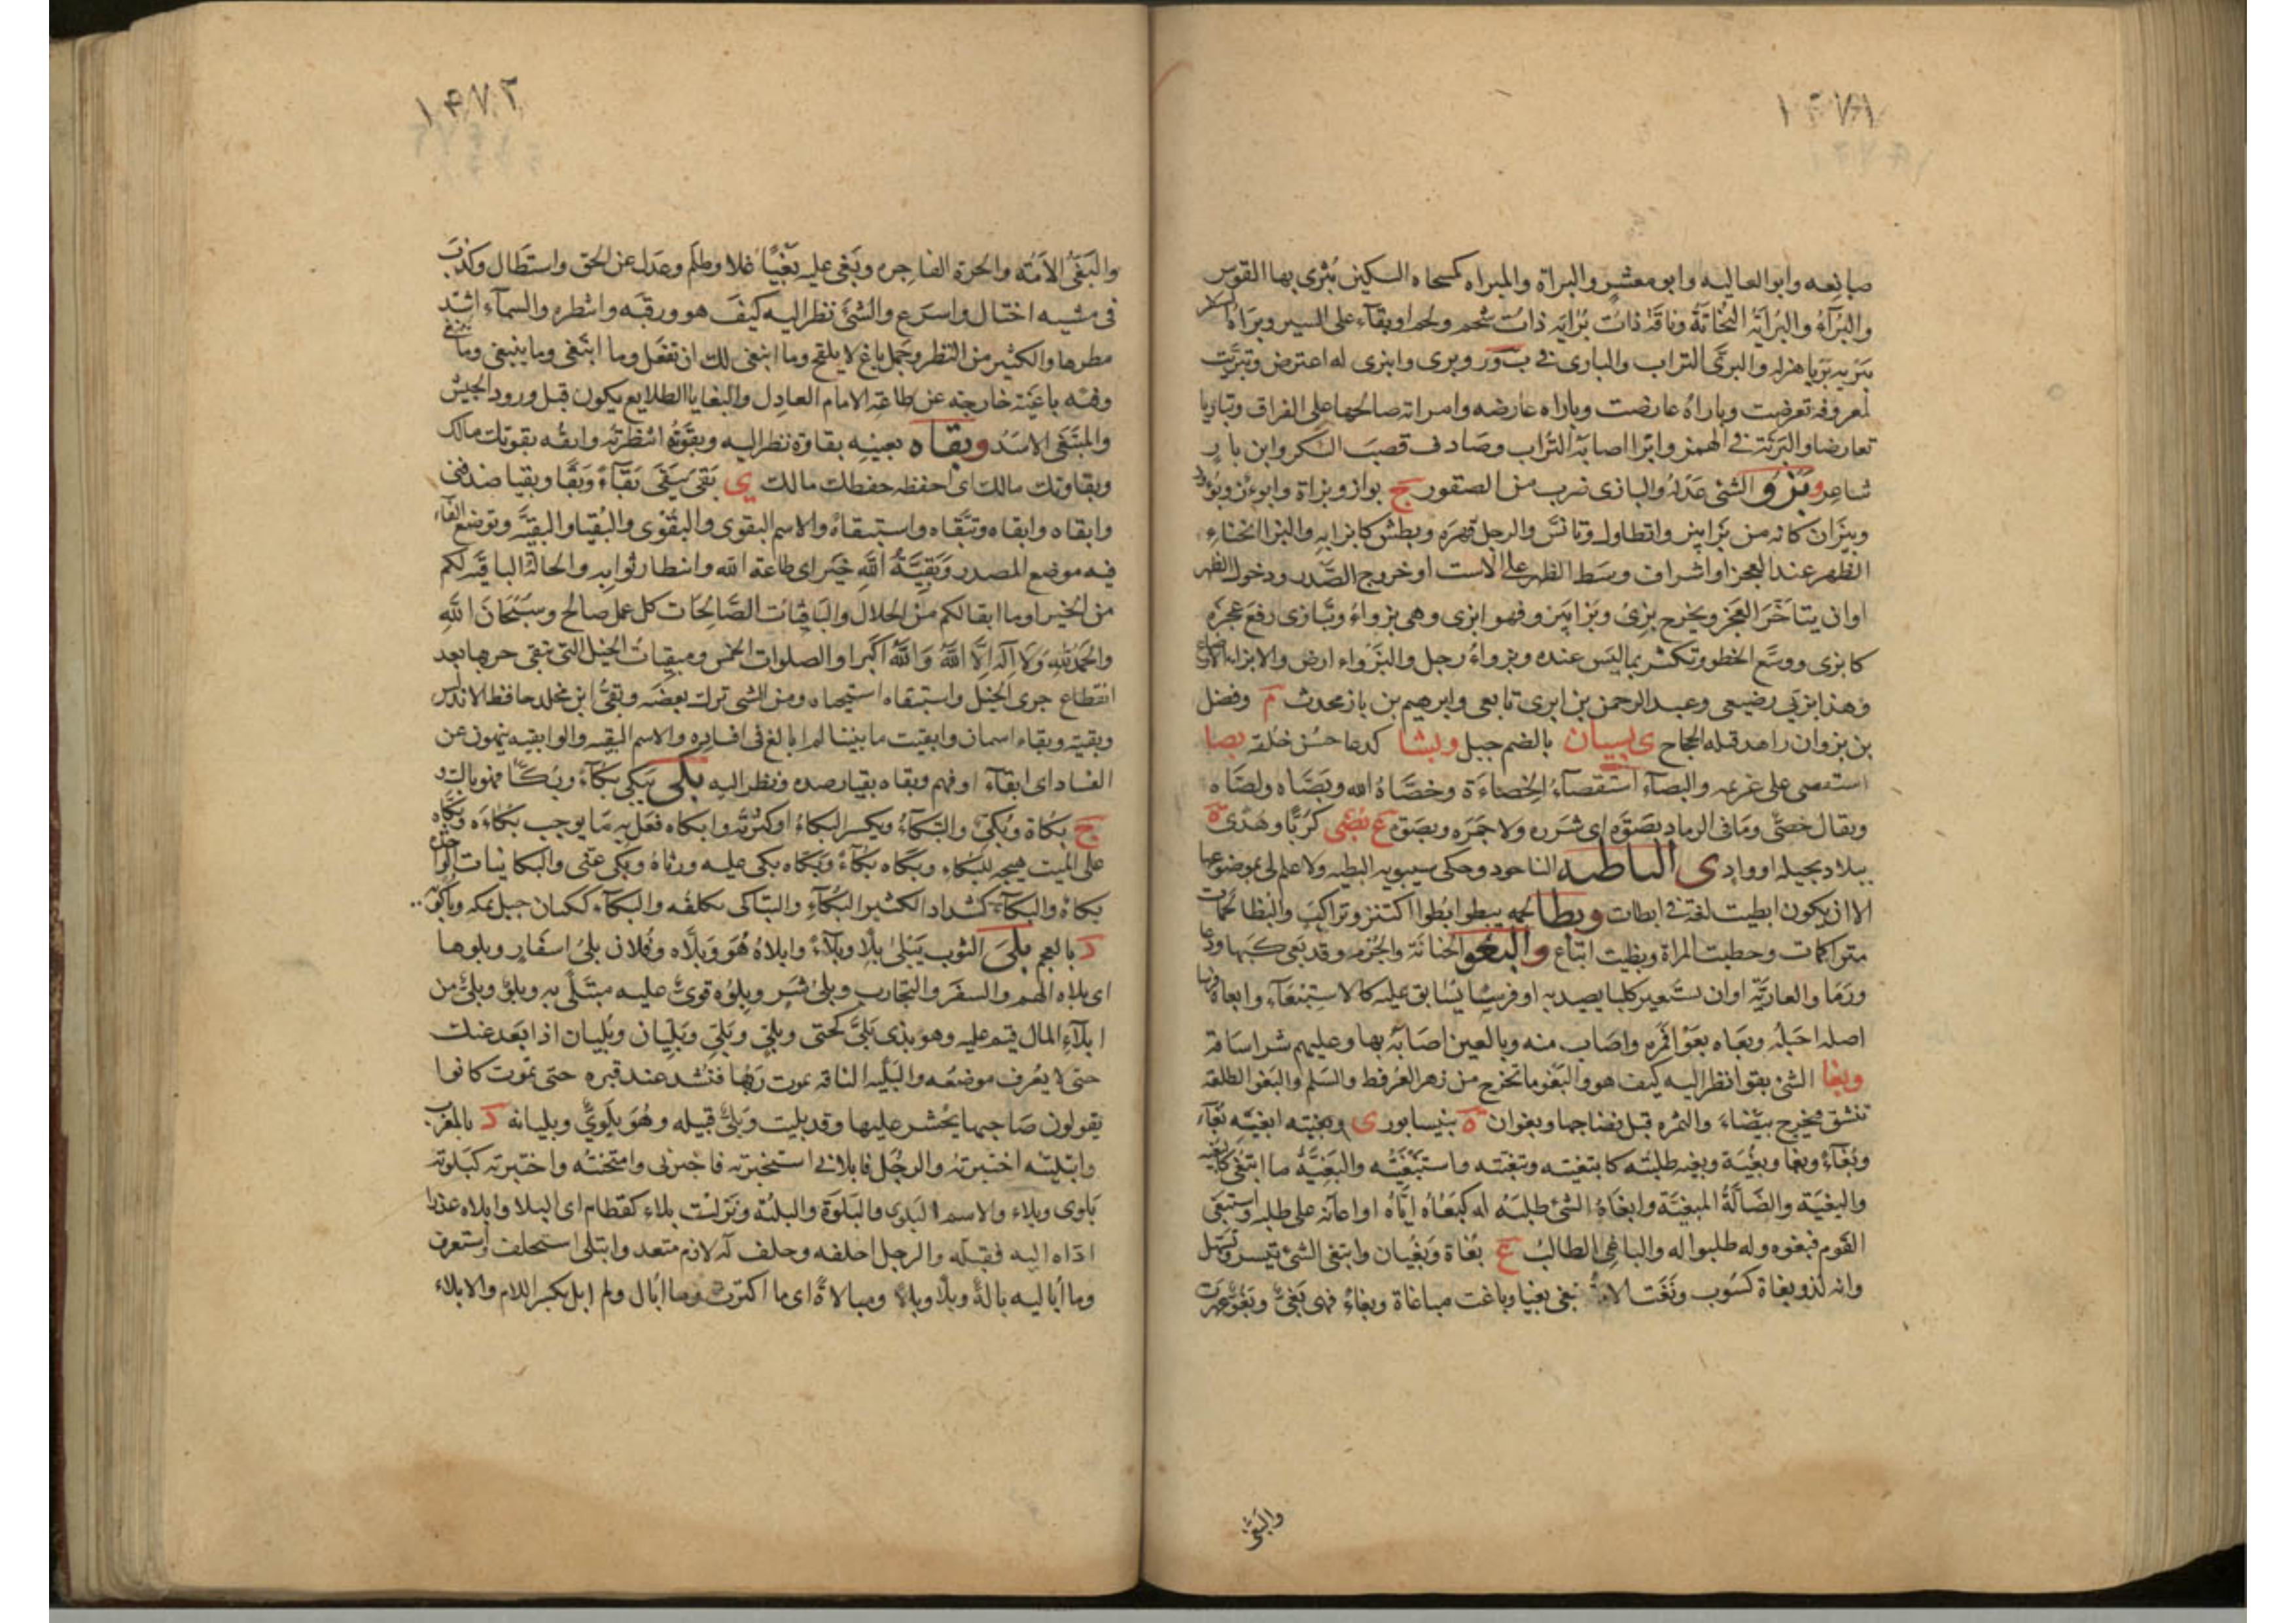 ١٤٧١
صانعه وابو العاليه وابو معشر والبراة والمبراه كمسحاه السكين يُبْرى بها القوس
والبُرآءُ والبُرَايَةُ النُحَاتَةُ وناقَة ذاتُ بُرَايَه ذاتُ شحم ولحم او بقآء على السير وبرَاهُ السفر
يَبْرِيه بَرْيا هزله والبرَى التراب والبارى فى ب ور وبرى وانبرى له اعترض وتبرّيت
لمعروفه تعرضت وباراهُ عارضه وامراته صالحها على الفراق وتباريا
تعارضا والبَرِيّة فى الهمز وابرا اصابه التُراب وصادف قصبَ السُّكر وابن بارٍ
شاعر وبَزْو الشئ عَدْلُهُ والبازى ضرب من الصقور ج بواز وبزاة وابوءز وبؤوز
وبيزان كانه من بَزا يبزو اتطاول وتانّسَ والرجل قهرَه وبطش كابزا به والبزا انحناء
الظهر عند العجز او اشراف وسَط الظهر على الاست او خروج الصَّدر ودخول الظهر
او ان يتاخَّرَ العَجز ويخرج بزِىَ وبَزا يَبزو فهو ابزى وهى بزواءُ وتبَازى رفعَ عجزَه
كابزى ووسَّع الخطو وتكثر بما ليَس عنده وبزواءُ رجل والبَزْواء ارض والابزاء الارضاع
وهذا بزيى رضيعى وعبد الرحمن بن ابزى تابعى وابرهيم بن باز محدث م وفضل
بن بزوان زاهد قتله الحجاج ى بسيان بالضم جبل و بشا كدعا حسُن خلقه بصا
استقصى على غريمه والبصآء استقصآءُ الخِصاء وخصَّاهُ الله وبَصَّاه ولصَّاه
ويقال خصىّ وما فى الرماد بصْوَة اى شررة ولا جمَرَه وبصوة ع بضى كرُبّا وهُدىً ة
ببلاد بجيله او واد ى الباطيه الناجود وحكى سيبويه البطيه ولا علم لى بموضوعها
الا ان يكون ابطيت لغة فى ابطات وبظا لحمه يبظو ابُظوا اكتنز وتراكبَ والبظا لحَمات
متراكمات وحظيت المراة وبظيت اتباع والبغو الجناية والجُرم وقد بَعى كسَعى ودعا
ورَمَا والعاريَّة او ان تستعير كلبا يصيد به او فرسًا يُسابق عليه كالاستِبْعَآء وابعاه فرسا
اصله اخَبلهُ وبعَاه بعْوًا قَمرَه واصَاب منه وبالعين اصَابَهُ بها وعليهم شرا ساقه
وبغا الشئ بغوا نظر اليه كيف هو والبَغْو ما تخرج من زهر العُرفط والسَلم والبَغو الطلعه
تنشق فتخرج بيضاءَ والثمره قبل نضاجها وبغوان ة بنيسابور ى وبغيته ابغيه بُغآء
وبُغآءً وبغا وبُغْيَة وبغيه طلبته كابتغيته وتبغيته واستبغيته والبَغيَّةُ ما ابتُغى كالبغيه
والبغيَة والضَّالَّةُ المبغيَّة وابغَاهُ الشئ طلبَهُ له كبَغَاهُ ايَّاه او اعانه على طلبه واستبغى
القَوم فبغوه وله طلبوا له والباغى الطالبُ ج بغَاة وبُغْيَان وابتغى الشئ تيسر وتسهل
وانه لذو بغاة كسُوب وبَغَت الامةُ تبغى بغيا وباغت مباغاة وبغاءً فهى بَغىٌّ وبَغُوٌّ عهرت
والبغى
١٤٧٢
والبَغىُّ الأمَةُ والحرة الفاجره وبَغى عليه بَغْيًا عَلا وظلَم وعدَل عن الحق واستطال وكذب
فى مشيه اختال واسرع والشئ نظر اليه كيفَ هو ورقبَه وانتظره والسمآء اشتد
مطرها والكثير من النظر وجمل باغ لا يلقح وما انبغى لك ان تفعَل وما ابتَغى وما ينبغى وما يبتغى
وفئه باغيَة خارجه عن طاعة الامام العادِل والبغايا الطلايع يكون قبل ورود الجيش
والمبتَغى الاسَدُ وبقاه بعينه بقاوة نظر اليه وبقَوتُهُ انتظرتُهُ وابقُه بقوتك مالك
وبقاوتك مالك اى احفظه حفظك مالك ى بَقى يَبقَى بَقآءً وبَقًا وبقيا ضد فنى
وابقاه وابقاه وتبقَّاه واستبقاهُ والاسم البقوى والبقْوَى والبُقيا والبقيّة وتوضع الباقية
فيه موضع المصدر وَبَقِيَّةُ اللهِ خَيْر اى طاعة الله وانتظار ثوابه والحالة الباقيَة لكم
من الخير او ما ابقا لكم من الحلال والبَاقِيَات الصَّالِحَات كل عمل صالح وسُبْحَانَ اللهِ
والحَمْدُ للهِ وَلَا اِلَهَ اِلَّا اللهُ وَاللهُ اَكبَر او الصلوات الخمس ومبقياتُ الخيل التى تبقى جريها بعد
انقطاع جرى الخيل واستبقاه استحياه ومن الشئ ترك بعضه وبقىُّ ابن مخلد حافظ الاندلس
وبقيَة وبقاء اسمان وابقيت ما بيننا لم ابالغ فى افساده والاسم البقيه واولوا بقيه ينهون عن
الفساد اى ابقآء او فهم وبقاه بقيا رصده ونظر اليه بكى يَبكِى بُكآءً وبُكًا فهو باك
ج بكاة وبُكىّ والتبكآءُ ويكسر البكاءُ او كثرتُه وابكاه فعَل به مَا يوجب بكاءَه وبكّاه
على الميت هيجه للبكاء وبكاه بكآءً وبَكّاه بكى عليه ورثاهُ وبكى غنى والبكا نبات الواحده
بكاة والبكآءُ كشداد الكثير البكآء والتباكى تكلفُه والبكآء ككتان جبل بمكه وباكويه
د بالعجم بلىَ الثوب يَبْلىٰ بِلًا وبلآءً وابلاهُ هُوَ وبَلَّاه وفُلان بلىُ اسفَار وبلوها
اى بلاه الهم والسفَر والتجارب وبلىُ شر وبلِوُه قوىٌّ عليه مبتلًى به وبلو وبلىُ من
ابلآءِ المال قيّم عليه وهو بذى بَلىَّ كحتى وبلِىّ وبَلَيان وبلِيان اذا بَعد عنك
حتى لا يعُرف موضعَه والبَليَّه الناقه يموت ربُّها فتشد عند قبره حتى تموت كانوا
يقولون صَاحبها يحُشر عليها وقد بليت وبَلىٌّ قبيله وهُوَ بلَوىٌّ وبليانه د بالمغرب
وابتليتُه اختبرتهُ والرجُل فابلانى استخبرته فاخبرنى وامتحنتُه واختبرته كبَلوته
بَلوى وبلاء والاسم البلوى والبَلوَة والبليّة ونَزلت بلاء كقطام اى البلا وابلاه عذرا
ادّاه اليه فقبله والرجل احلفه وحلف له لازم متعد وابتلى استحلف واستعرف
وما أباليه بالةً وبلآءً وبلاً ومبالاةً اى ما اكترث وما أبال ولم ابل بكسر اللام والابلاء